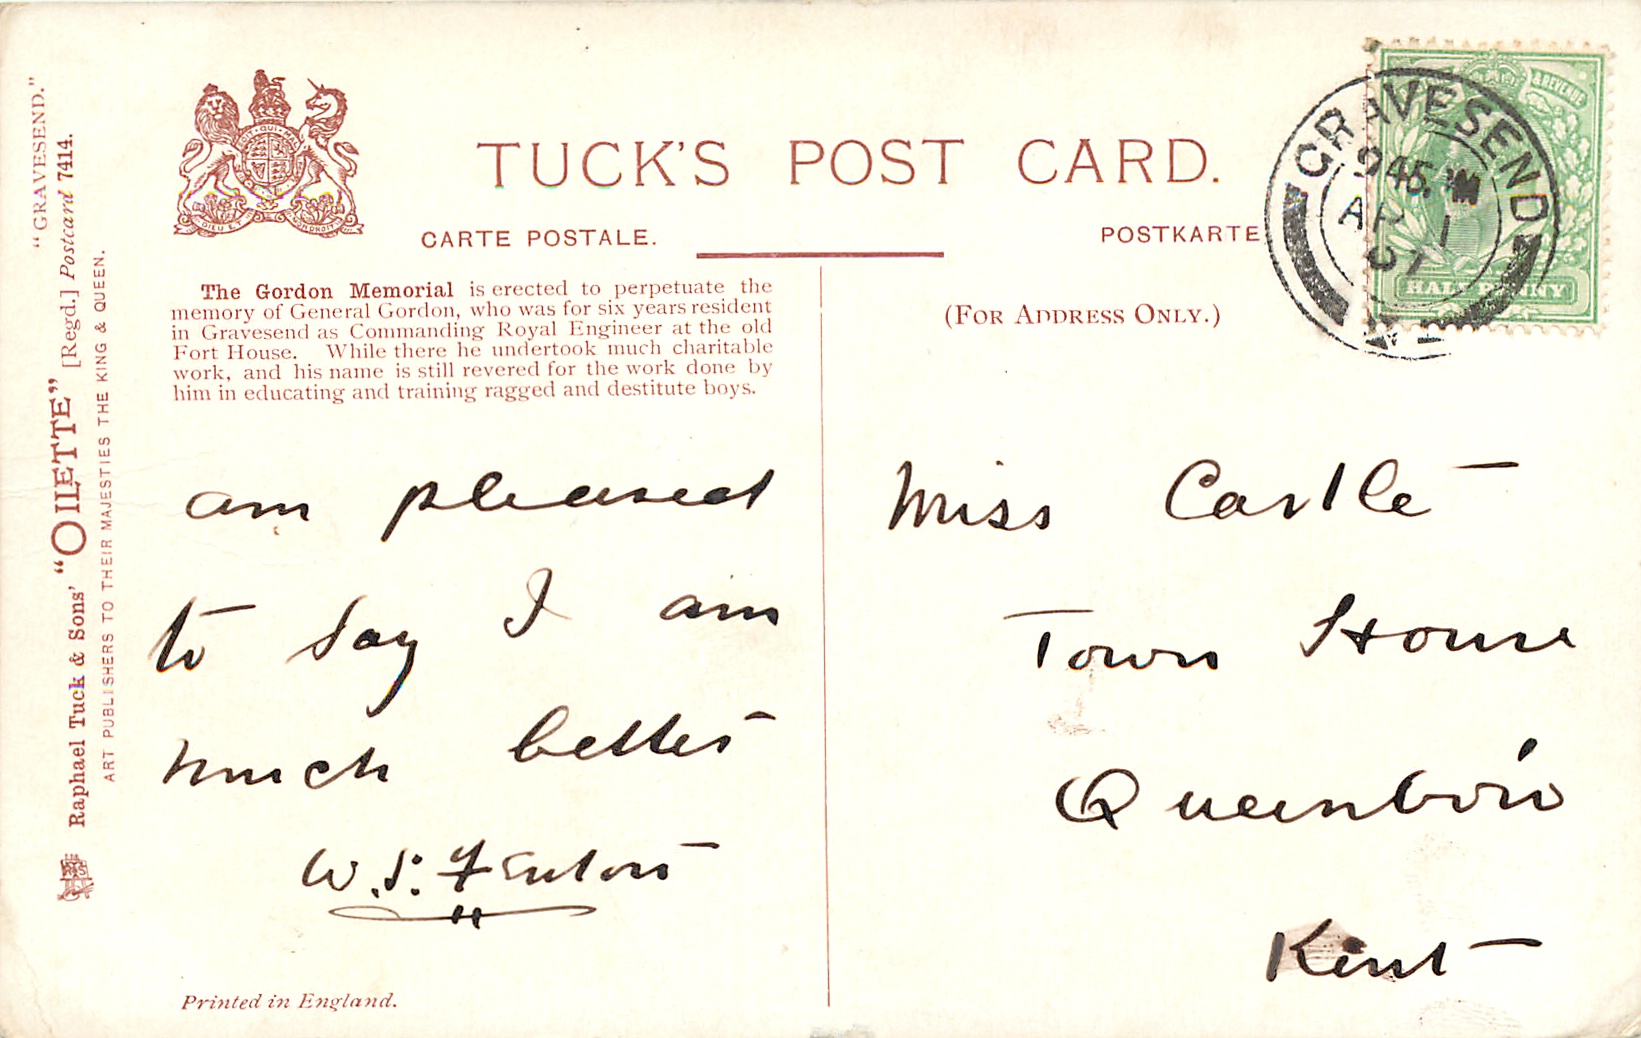 "GRAVESEND."
Raphael Tuck & Sons' "OILETTE" [Regd.] Postcard 7414.
ART PUBLISHERS TO THEIR MAJESTIES THE KING & QUEEN.
TUCK'S POST CARD.
CARTE POSTALE.
POSTKARTE
The Gordon Memorial is erected to perpetuate the
memory of General Gordon, who was for six years resident
in Gravesend as Commanding Royal Engineer at the old
Fort House. While there he undertook much charitable
work, and his name is still revered for the work done by
him in educating and training ragged and destitute boys.
am pleased
to say I am
much better
W. S. Fenton
Printed in England.
(FOR ADDRESS ONLY.)
GRAVESEND
945
AP 1
07
& REVENUE
HALF PENNY
Miss Castle
Town House
Queenboro
Kent